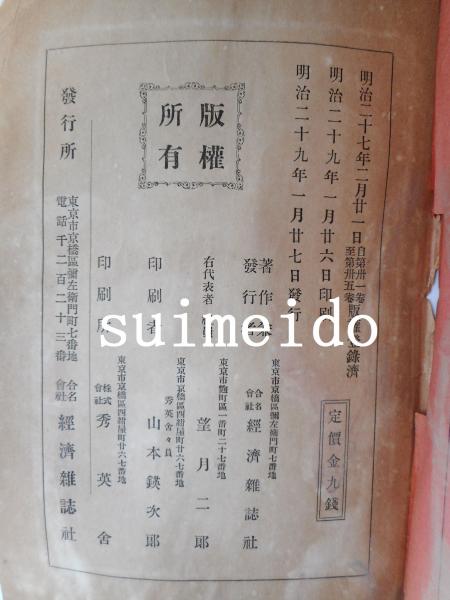 明治二十七年二月廿一日自第卅一卷至第卅五卷版權登錄濟
明治二十九年一月廿六日印刷
明治二十九年一月廿七日發行
定價金九錢
版權
所有
著作兼
發行者
東京市京橋區彌左衞門町七番地
合名會社 經濟雜誌社
右代表者
東京市麴町區一番町二十七番地
望月二郎
印刷者
東京市京橋區西紺屋町廿六七番地
秀英舍々員
山本鍈次郎
印刷所
東京市京橋區西紺屋町廿六七番地
株式會社 秀英舍
發行所
東京市京橋區彌左衞門町七番地
電話千二百二十三番
合名會社 經濟雜誌社
suimeido